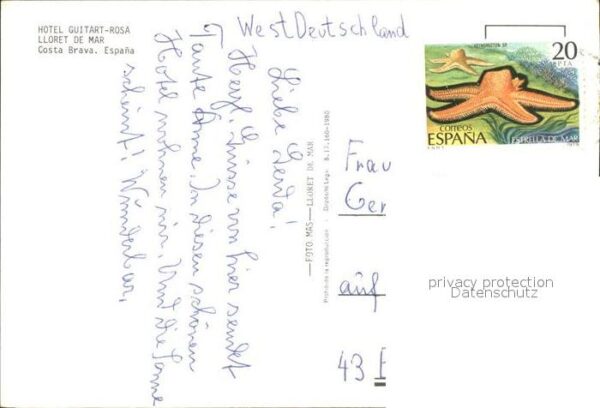 HOTEL GUITART-ROSA
LLORET DE MAR
Costa Brava. España
West Deutschland
Liebe Gerda!
Herzl. Grüsse von hier sendet
Tante Anne. In diesem schönen
Hotel wohnen wir. Und die Sonne
scheint! Wunderbar,
FOTO MAS — LLORET DE MAR
Prohibida la reproducción Depósito Leg. B.17.160-1980
20
PTA
CORREOS
ESPAÑA
ESTRELLA DE MAR
Frau
Ger
auf
43 E
privacy protection
Datenschutz